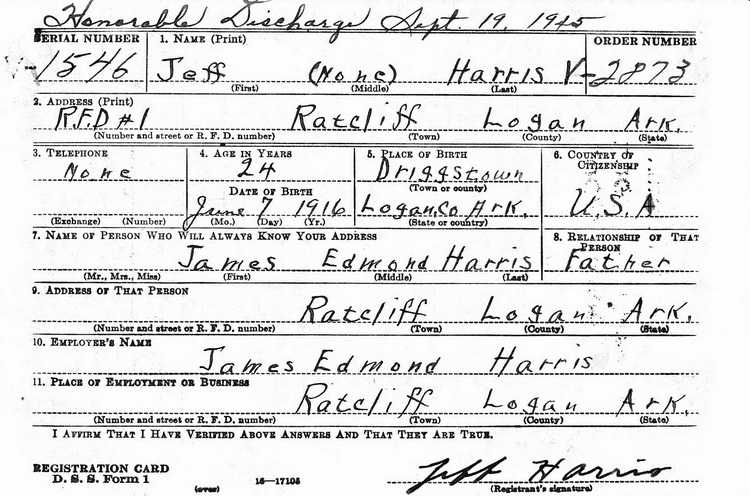 Honorable Discharge Sept. 19, 1945
SERIAL NUMBER 1. NAME (Print) ORDER NUMBER
1546 Jeff (None) Harris V-2873
(First) (Middle) (Last)
2. ADDRESS (Print)
R.F.D #1 Ratcliff Logan Ark.
(Number and street or R. F. D. number) (Town) (County) (State)
3. TELEPHONE 4. AGE IN YEARS 5. PLACE OF BIRTH 6. COUNTRY OF CITIZENSHIP
None 24 Driggstown
DATE OF BIRTH (Town or county)
June 7 1916 Logan.Co Ark. U.S.A
(Exchange) (Number) (Mo.) (Day) (Yr.) (State or country)
7. NAME OF PERSON WHO WILL ALWAYS KNOW YOUR ADDRESS 8. RELATIONSHIP OF THAT PERSON
James Edmond Harris Father
(Mr., Mrs., Miss) (First) (Middle) (Last)
9. ADDRESS OF THAT PERSON
Ratcliff Logan Ark.
(Number and street or R. F. D. number) (Town) (County) (State)
10. EMPLOYER'S NAME
James Edmond Harris
11. PLACE OF EMPLOYMENT OR BUSINESS
Ratcliff Logan Ark.
(Number and street or R. F. D. number) (Town) (County) (State)
I AFFIRM THAT I HAVE VERIFIED ABOVE ANSWERS AND THAT THEY ARE TRUE.
REGISTRATION CARD
D. S. S. Form 1 (over) 16—17105 Jeff Harris
(Registrant's signature)